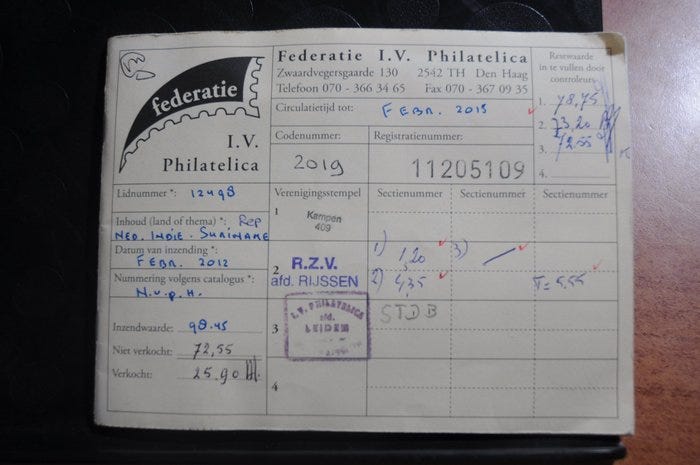 federatie
I.V.
Philatelica
Federatie I.V. Philatelica
Zwaardvegersgaarde 130 2542 TH Den Haag
Telefoon 070 - 366 34 65 Fax 070 - 367 09 35
Circulatietijd tot: FEBR. 2015
Restwaarde
in te vullen door
controleurs
1. 78,75
2. 73,20
3. 72.55
4.
Codenummer:
2019
Registratienummer:
11205109
Lidnummer *: 12498
Inhoud (land of thema) *: Rep
NED. INDIE. SURINAME
Datum van inzending *:
FEBR. 2012
Nummering volgens catalogus *:
N.v.p.H.
Inzendwaarde: 98.45
Niet verkocht: 72,55
Verkocht: 25.90
Verenigingsstempel Sectienummer Sectienummer Sectienummer
1
Kampen
409
2
R.Z.V.
afd. RIJSSEN
1) 1,20 3)
2) 4,35 T= 5,55
3
I.V. PHILATELICA
afd.
LEIDEN
STDB
4